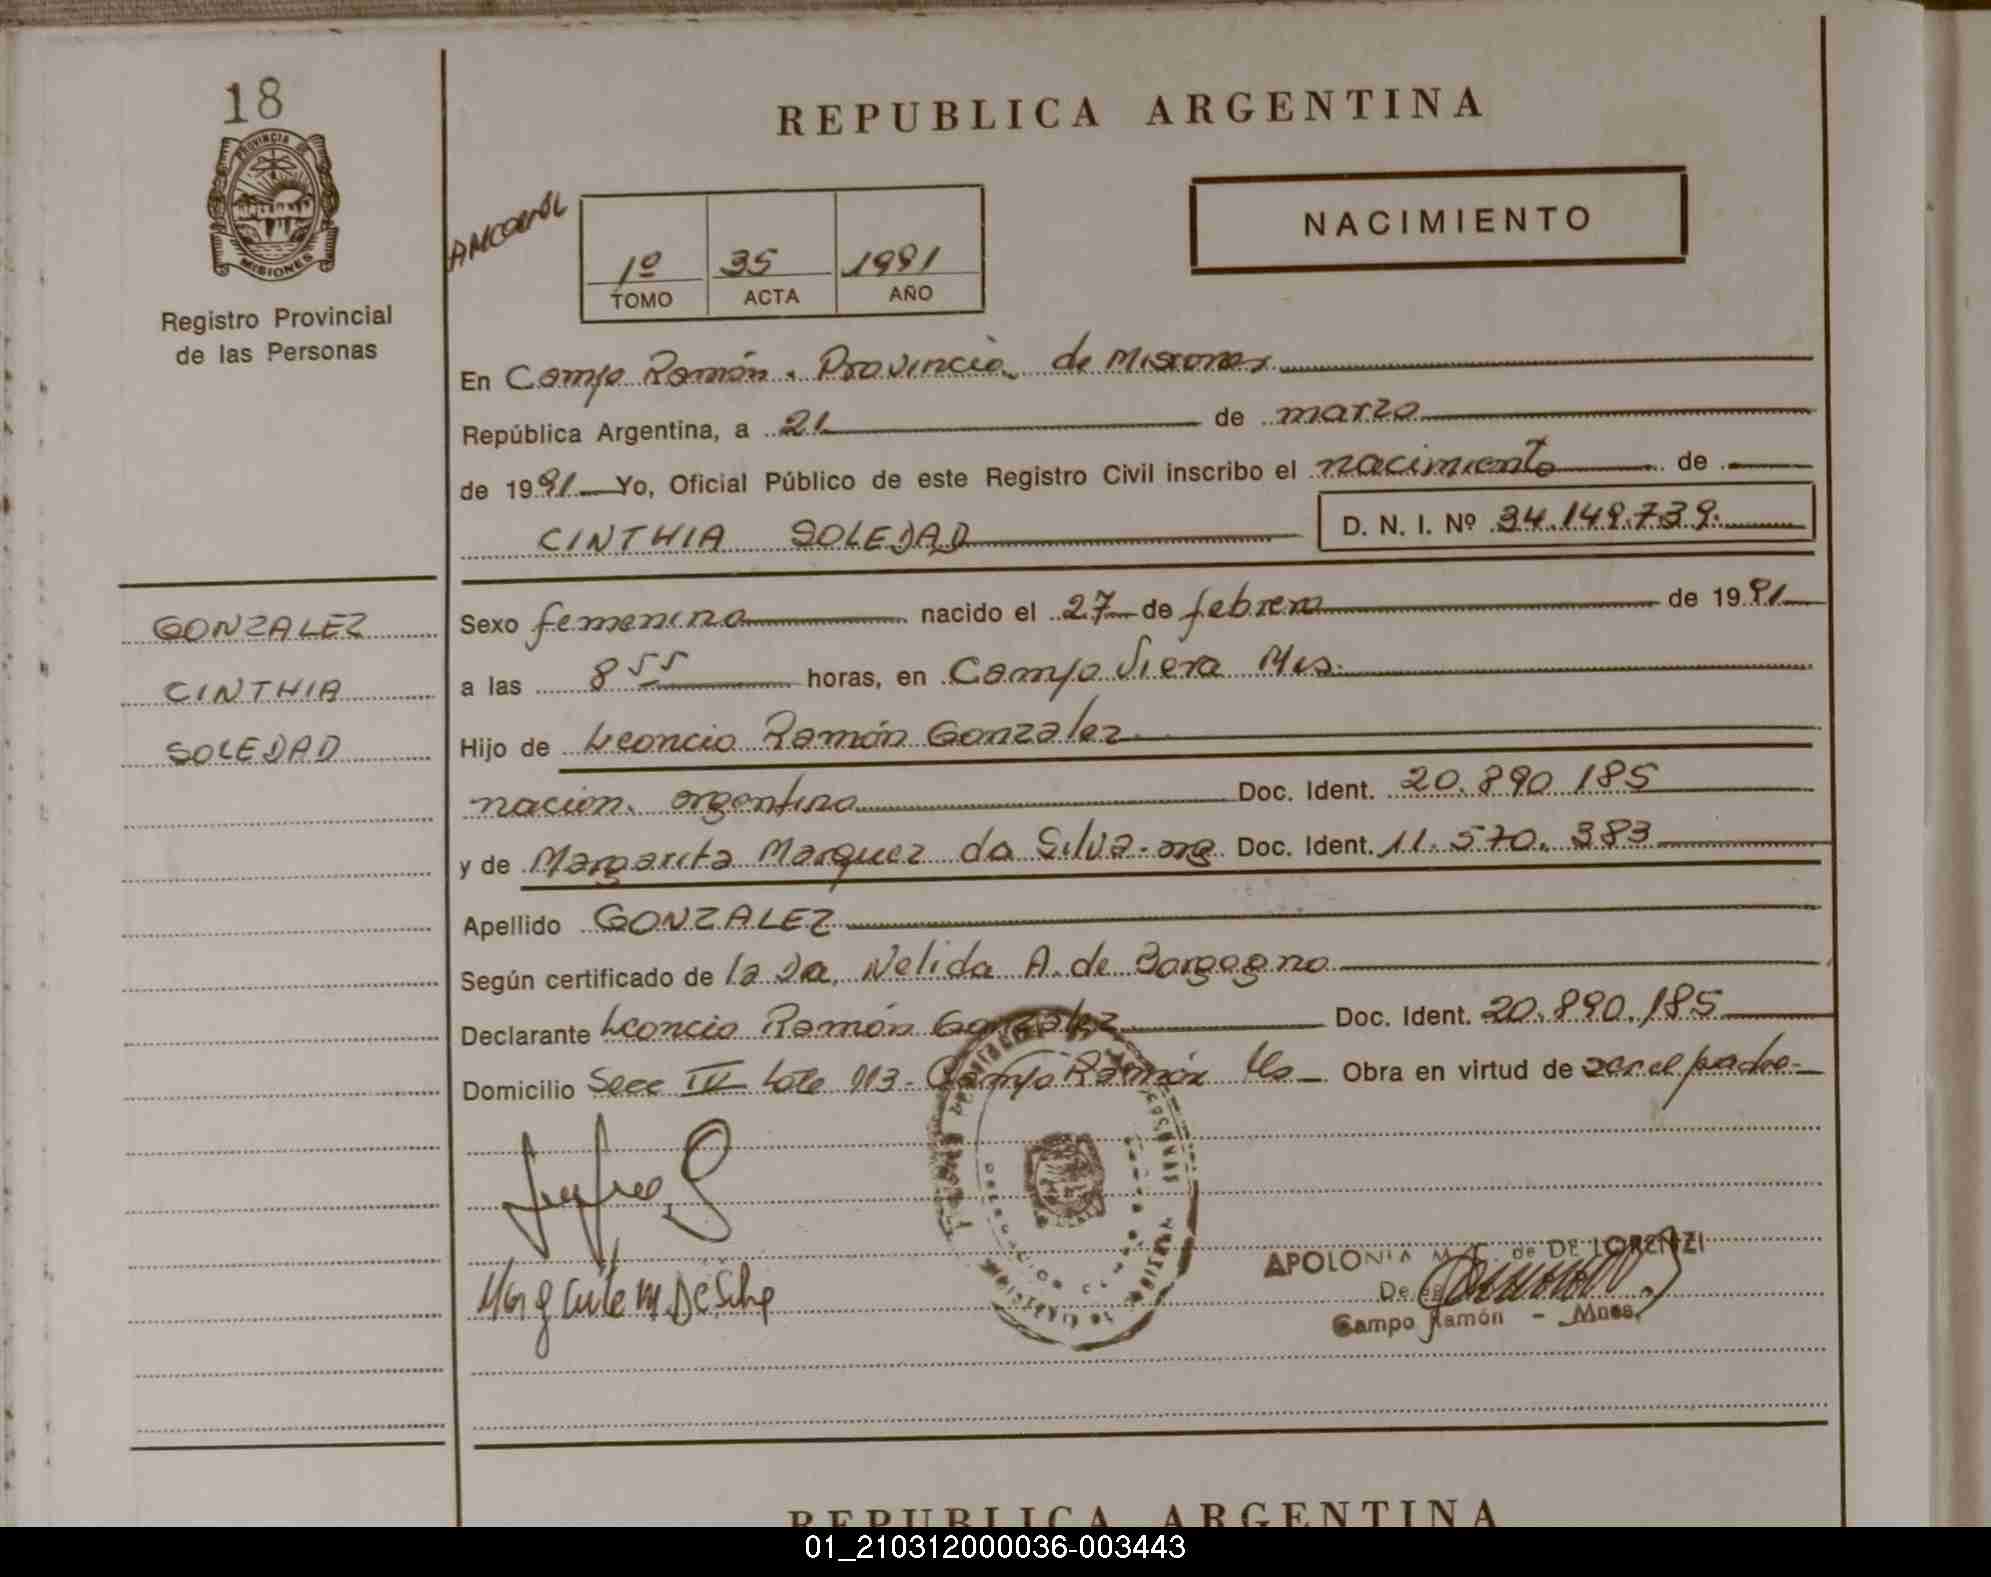 18
PROVINCIA DE
MISIONES
Registro Provincial
de las Personas
REPUBLICA ARGENTINA
NACIMIENTO
1º 35 1991
TOMO ACTA AÑO
En Campo Ramón. Provincia de Misiones
República Argentina, a 21 de marzo
de 1991 Yo, Oficial Público de este Registro Civil inscribo el nacimiento de
CINTHIA SOLEDAD D. N. I. Nº 34.149.739.
GONZALEZ
CINTHIA
SOLEDAD
Sexo femenino nacido el 27 de febrero de 1991
a las 8 55 horas, en Campo Viera Mis.
Hijo de Leoncio Ramón Gonzalez
nacion. argentina Doc. Ident. 20.890.185
y de Margarita Marquez da Silva. arg. Doc. Ident. 11.570.383
Apellido GONZALEZ
Según certificado de la Da. Nelida A. de Borgogno
Declarante Leoncio Ramón Gonzalez Doc. Ident. 20.890.185
Domicilio Secc IV Lote 113 - Campo Ramón Ms Obra en virtud de ser el padre.
APOLONIA M. de DE LORENZI
Campo Ramón - Mnes.
REPUBLICA ARGENTINA
01_210312000036-003443